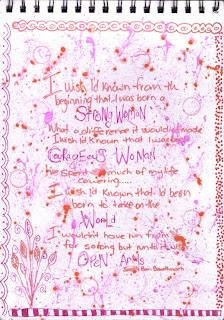 I wish I'd known from the
beginning that I was born a
STRONG WOMAN
What a difference it would've made
I wish I'd known that I was born a
Courageous WOMAN
I've spent so much of my life
cowering....
I wish I'd known that I'd been
born to take on the
World
I wouldn't have run from
for so long but run to it with
OPEN ARMS
Sarah Ban Breathnach